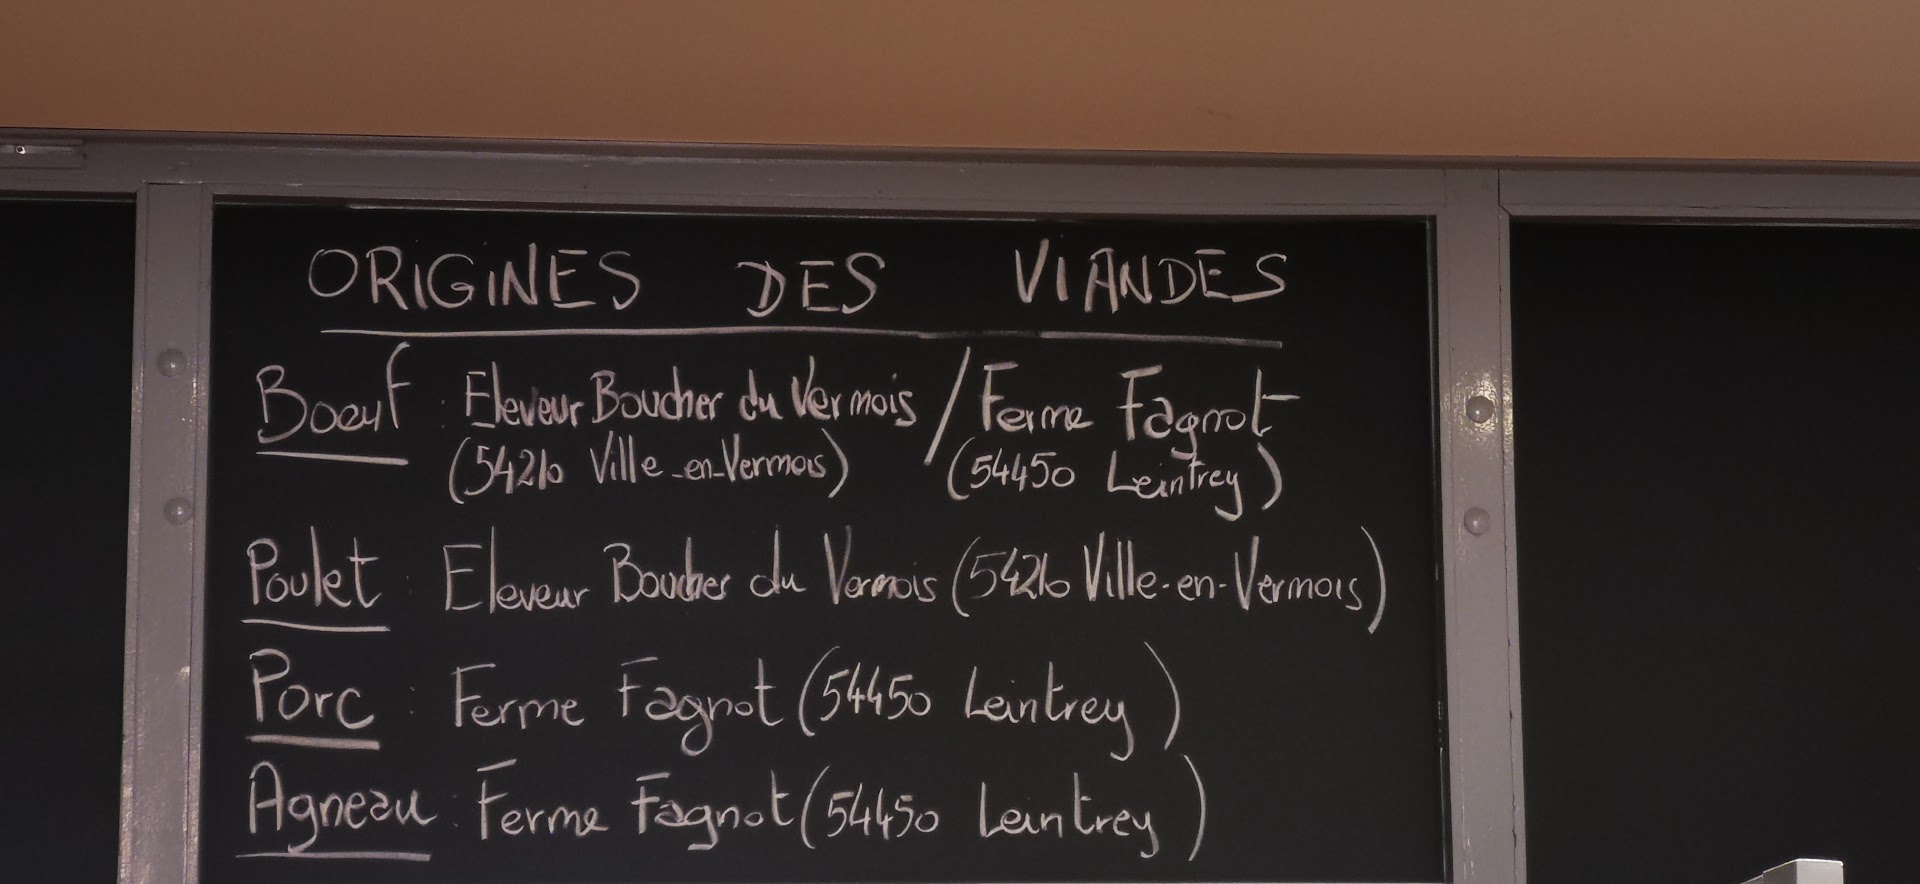 ORIGINES DES VIANDES
Boeuf : Eleveur Boucher du Vermois / Ferme Fagnot
(54210 Ville-en-Vermois) (54450 Leintrey)
Poulet : Eleveur Boucher du Vermois (54210 Ville-en-Vermois)
Porc : Ferme Fagnot (54450 Leintrey)
Agneau : Ferme Fagnot (54450 Leintrey)